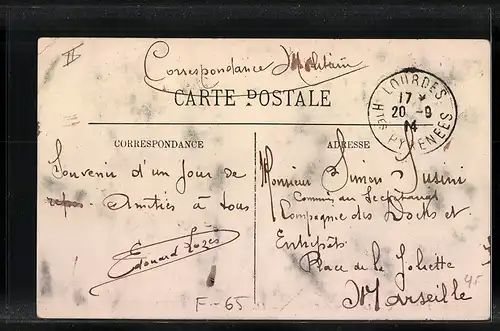 II
Correspondance Militaire
CARTE POSTALE
LOURDES
17 *
20 -9
14
HTES PYRENEES
CORRESPONDANCE
ADRESSE
Souvenir d'un jour de
repos. Amitiés à tous
Edouard Lozes
Monsieur Simon Susini
Commis au Secrétariat
Compagnie des Docks et
Entrepôts
Place de la Joliette
Marseille
F-65